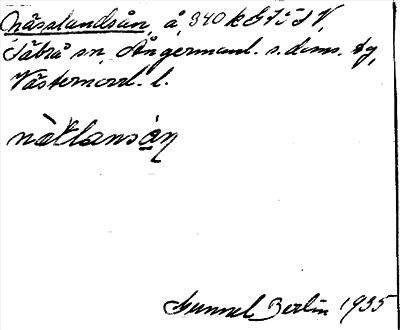 Nässlandsån, å, 340 k G 7 i S V,
Säbrå sn, Ångermanl. s. doms. tg,
Västernorrl. l.
nàtlansán
Gunnel Berlin 1935